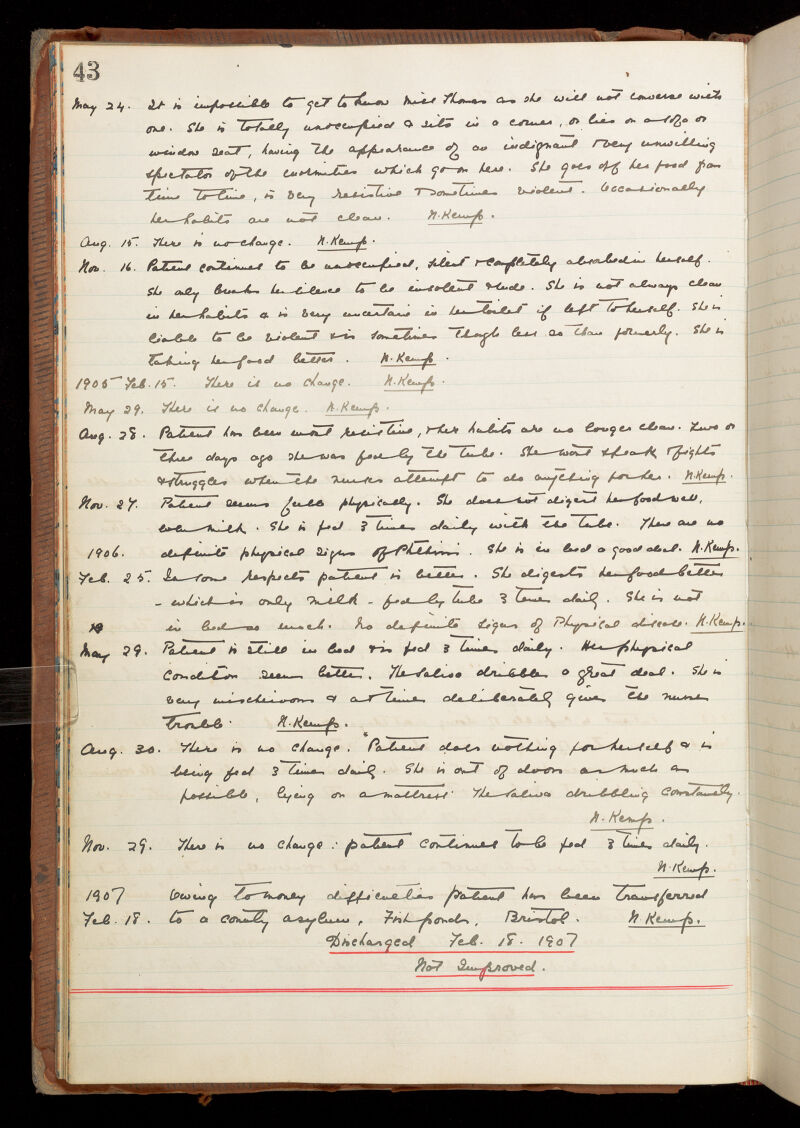 43
May 24. It is impossible to get to know Miss Thomas as she will not converse with
one. She is totally unoccupied & sits in a corner, or lies on a sofa or
window seat, having the appearance of an indignant & very unwilling
spectator of the enormities which go on here. She goes off her food from
time to time, is very resistive & sometimes violent. Occasionally
her habits are not clean. N. Kemp.
Aug. 15. There is no change. N. Kemp.
Nov. 16. Patient continues to be unoccupied, silent & completely absorbed in herself.
She only breaks her silence to be insolent & rude. She is not always clean
in her habits & is very uncertain in her toilet if left to herself. She is
liable to be violent & is sometimes though less so than formerly. She is
taking her food better. N. Kemp.
1905 Feb. 15. There is no change. N. Kemp.
May 29. There is no change. N. Kemp.
Aug. 28. Patient has been most resistive, & her habits are no longer clean. Two or
three days ago she was fed by the tube. She wont speak & fights
& struggles when the nurses attempt to do anything for her. N. Kemp.
Nov. 27. Patient seems feeble physically. She does not digest her food well,
even milk. She is fed 3 times daily with the tube. There are no
1906. definite physical signs of Phthisis. She is in bed a good deal. N. Kemp.
Feb. 25. In some respects patient is better. She digests her food better
- which is only milk - fed by tube 3 times daily. She is not
in bed so much. No definite signs of Physical disease. N. Kemp.
May 29. Patient is still in bed & is fed 3 times daily. Her physical
condition seems better. The saliva dribbles a great deal. She is
very mischievous & at times deliberately gives the nurses
trouble. N. Kemp.
Aug. 30. There is no change. Patient does nothing for herself & is
being fed 3 times daily. She is out of doors as much as
possible, lying on a mattress. The saliva dribbling constantly.
N. Kemp.
Nov. 29. There is no change: patient continues to be fed 3 times daily.
N. Kemp.
1907 Owing to money difficulties patient has been transferred
Feb. 18. to a county asylum, Fishponds, Bristol. N. Kemp.
Discharged Feb. 18. 1907
Not Improved.